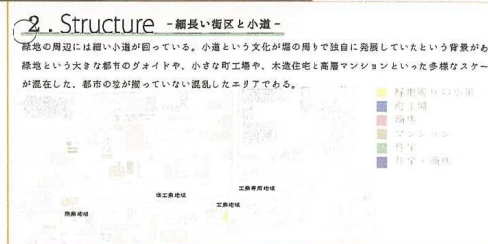 2.Structure -細長い街区と小道-
緑地の周辺には細い小道が回っている。小道という文化が堀の周りで独自に発展していたという背景があ
緑地という大きな都市のヴォイドや、小さな町工場や、木造住宅と高層マンションといった多様なスケー
が混在した、都市の
が揃っていない混乱したエリアである。
町工場
商店
マンション
住宅
住宅+商店
工業専用地域
準工業地域
工業地域
商業地域